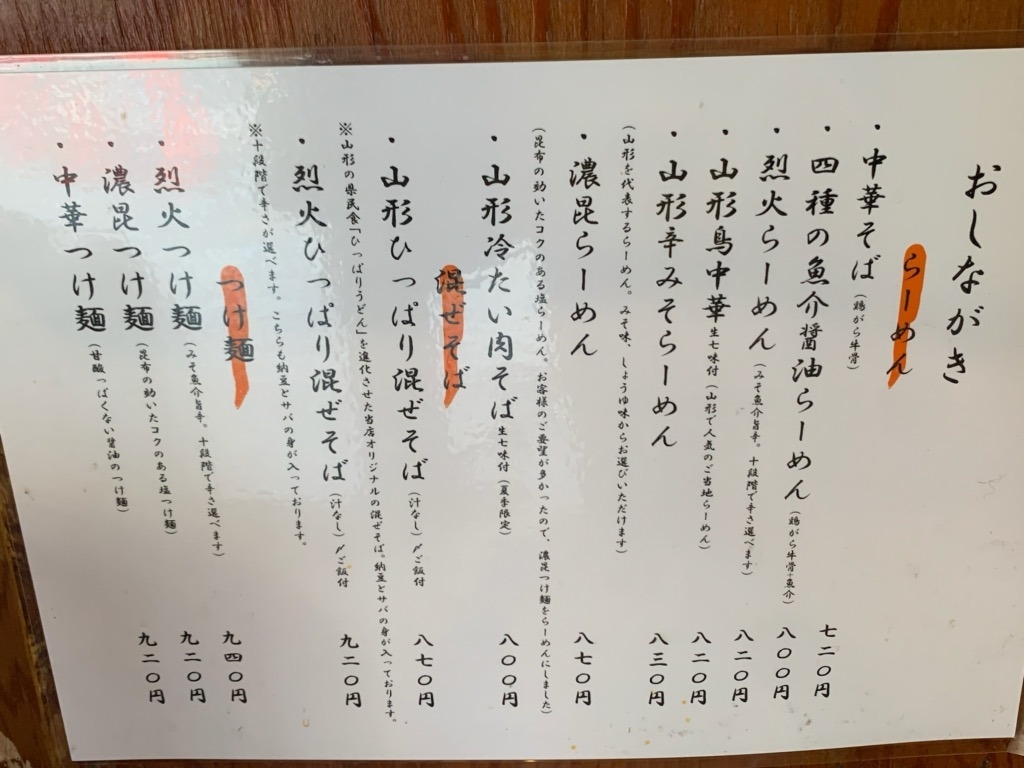 おしながき
らーめん
・中華そば（鶏がら牛骨） 七二〇円
・四種の魚介醤油らーめん（鶏がら牛骨+魚介） 八〇〇円
・烈火らーめん（みそ魚介旨辛。十段階で辛さ選べます） 八二〇円
・山形鳥中華生七味付（山形で人気のご当地らーめん） 八二〇円
・山形辛みそらーめん 八三〇円
（山形を代表するらーめん。みそ味、しょうゆ味からお選びいただけます）
・濃昆らーめん 八七〇円
（昆布の効いたコクのある塩らーめん。お客様のご要望が多かったので、濃昆つけ麺をらーめんにしました）
・山形冷たい肉そば生七味付（夏季限定） 八〇〇円
混ぜそば
・山形ひっぱり混ぜそば（汁なし）〆ご飯付 八七〇円
※山形の県民食「ひっぱりうどん」を進化させた当店オリジナルの混ぜそば。納豆とサバの身が入っております。
・烈火ひっぱり混ぜそば（汁なし）〆ご飯付 九二〇円
※十段階で辛さが選べます。こちらも納豆とサバの身が入っております。
つけ麺
・烈火つけ麺（みそ魚介旨辛。十段階で辛さ選べます） 九四〇円
・濃昆つけ麺（昆布の効いたコクのある塩つけ麺） 九二〇円
・中華つけ麺（甘酸っぱくない醤油のつけ麺） 九二〇円